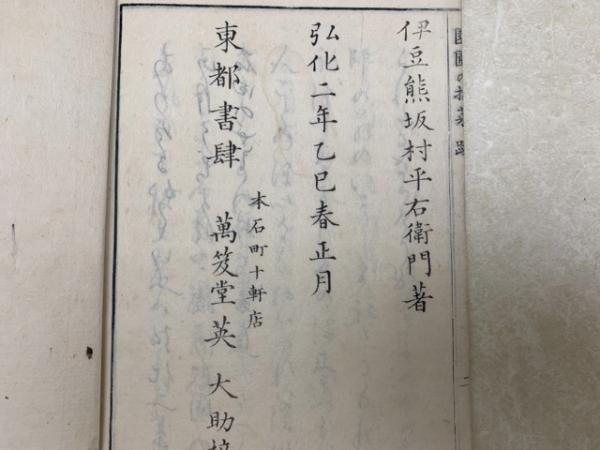 伊豆熊坂村平右衛門著
弘化二年乙巳春正月
本石町十軒店
東都書肆 萬笈堂英 大助